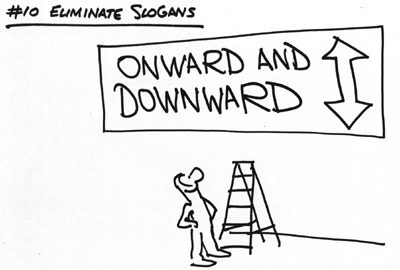 #10 ELIMINATE SLOGANS
ONWARD AND
DOWNWARD